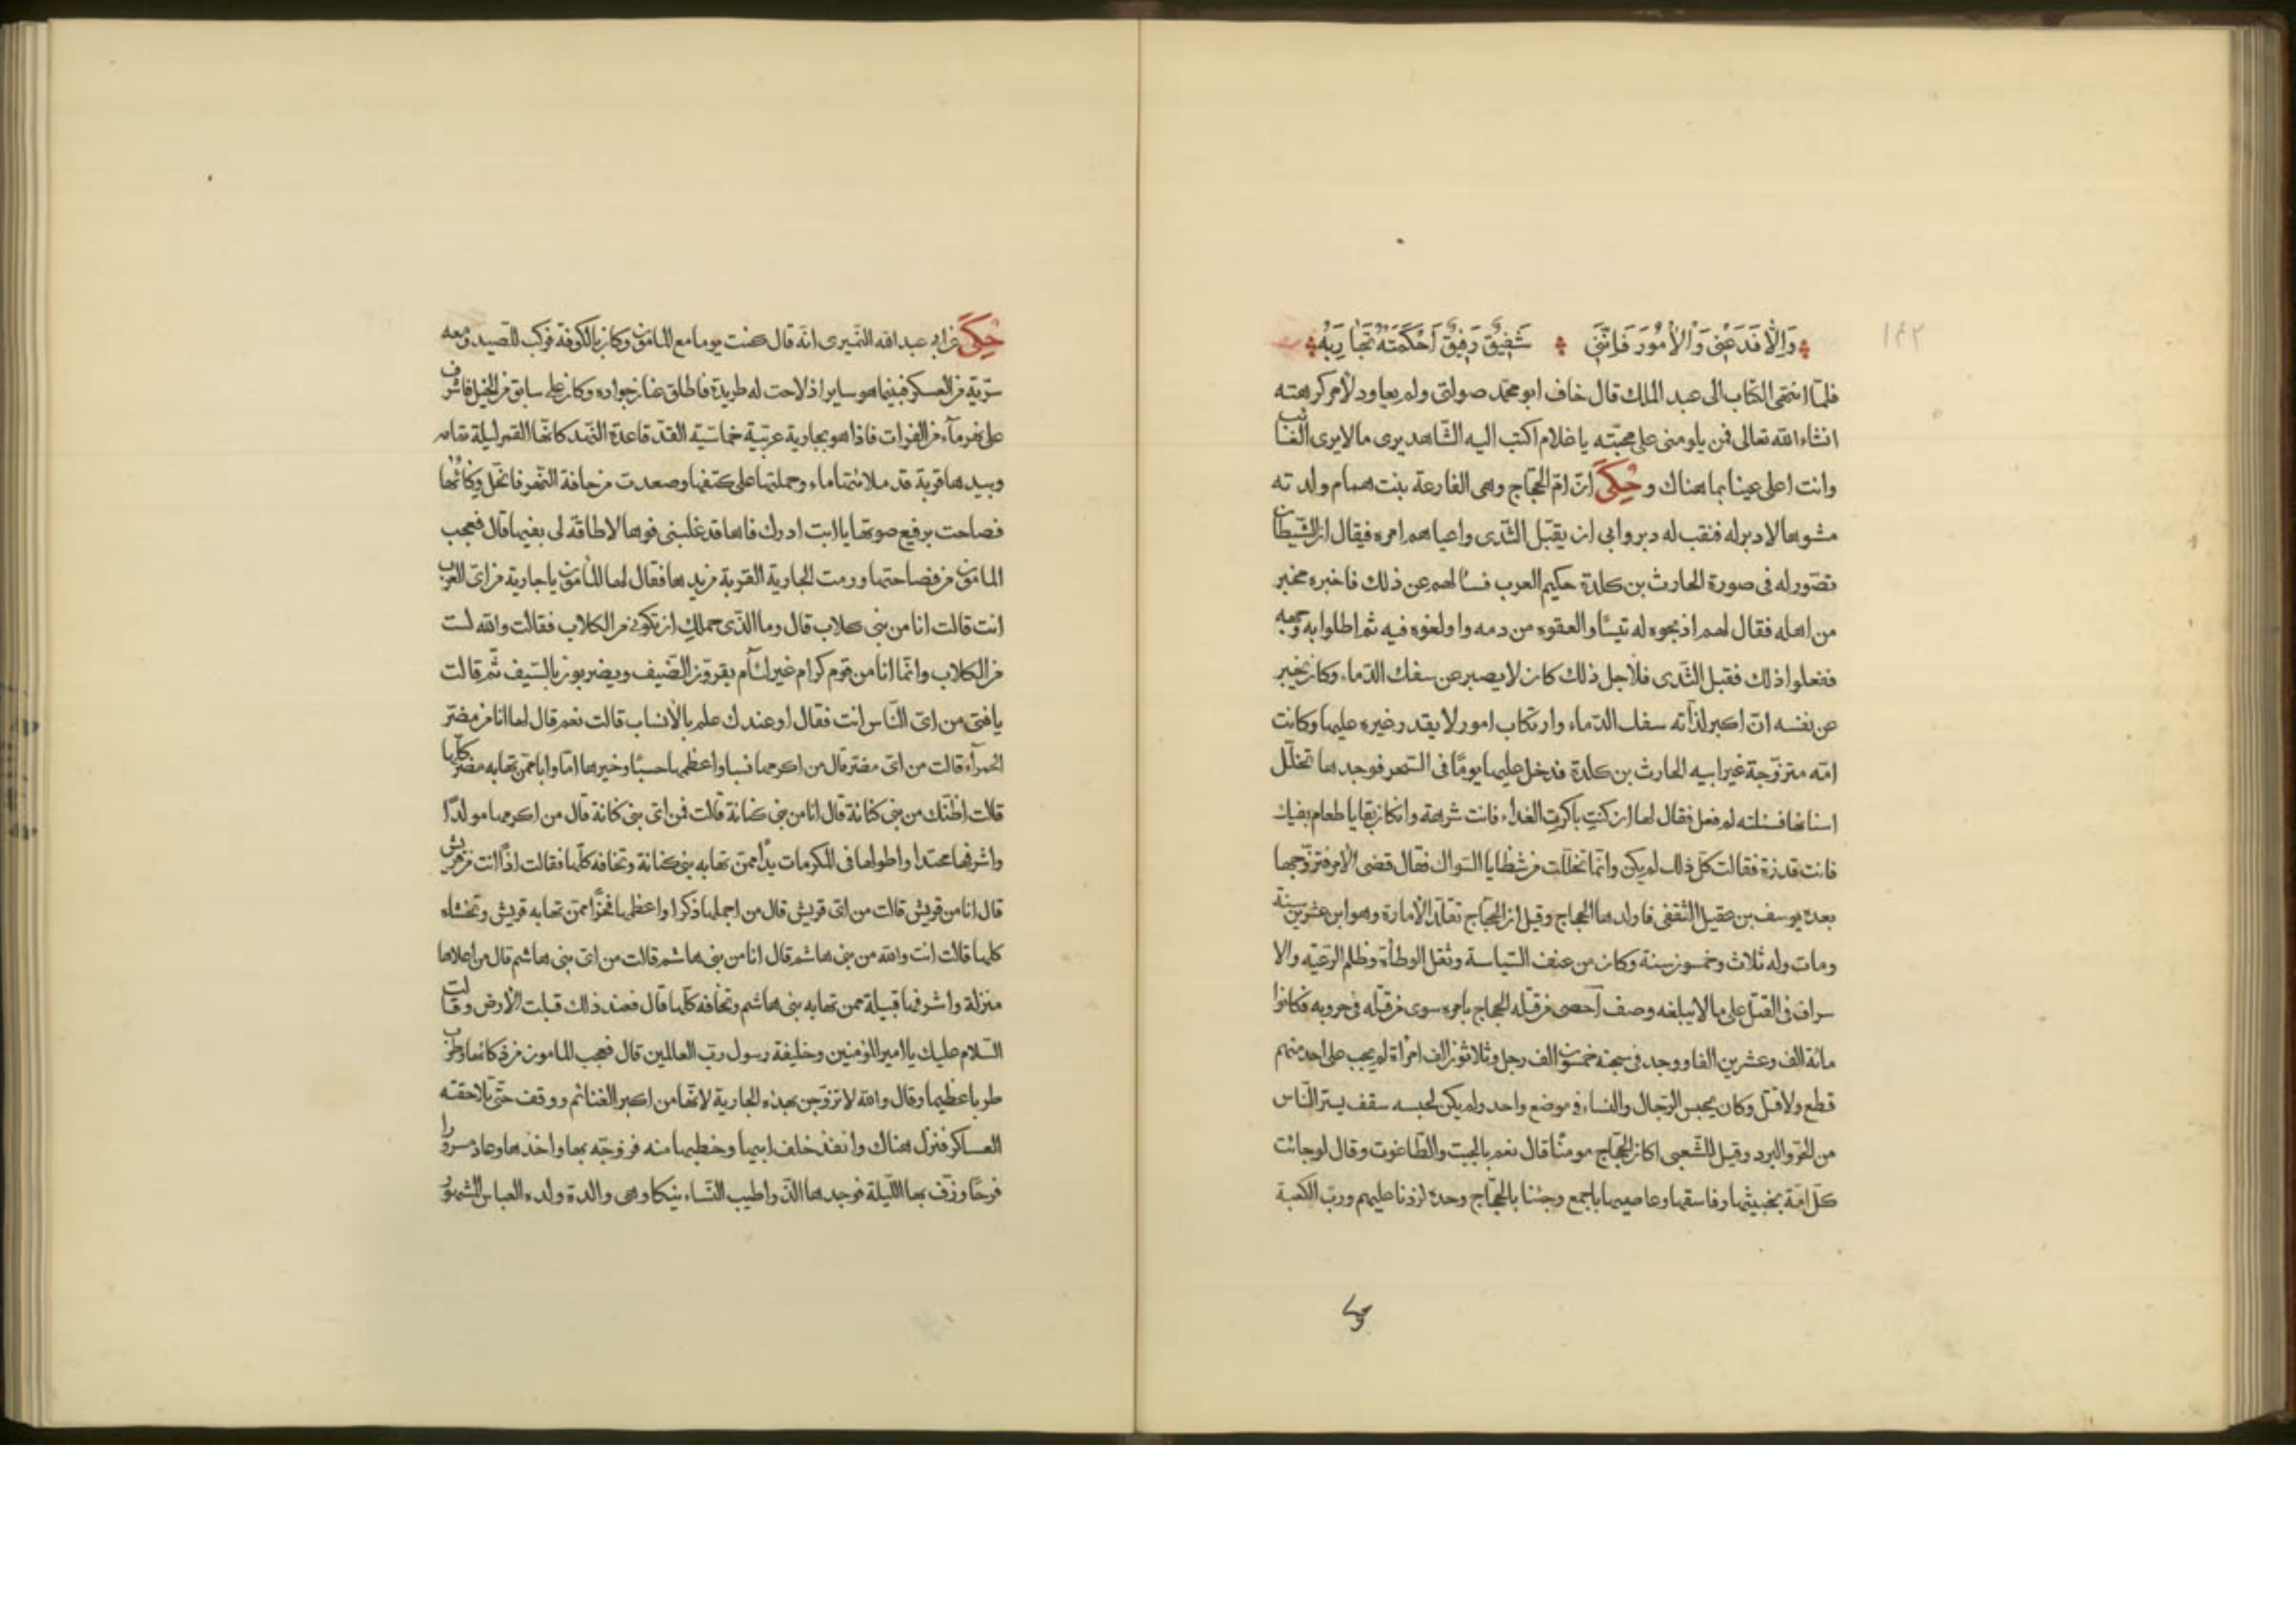 ١٤٢
وَاِلَّا فَدَعْنِى وَالْاُمُورَ فَاِنَّنِى شَفِيقٌ رَفِيقٌ اَحْكَمَتْهُ تَجَارِبُهْ
فلما انتهى الكتاب الى عبد الملك قال خاف ابو محمد صولتى ولم يعاود لامر كرهته
انشاء الله تعالى فمن يلومنى على محبته يا غلام اكتب اليه الشاهد يرى ما لا يرى الغائب
وانت اعلى عينا بما هناك وحكى انّ امّ الحجاج وهى الفارعة بنت همام ولدته
مشوها لا دبر له فنقب له دبر وابى ان يقبل الثدى واعياهم امره فيقال ان الشيطان
تصور له فى صورة الحارث بن كلدة حكيم العرب فسألهم عن ذلك فاخبره مخبر
من اهله فقال لهم اذبحوه له تيسا والعقوه من دمه واولغوه فيه ثم اطلوا به وجهه
ففعلوا ذلك فقبل الثدى فلاجل ذلك كان لا يصبر عن سفك الدماء وكان يخبر
عن نفسه ان اكبر لذاته سفك الدماء وارتكاب امور لا يقدر غيره عليها وكانت
امه متزوجة غير ابيه الحارث بن كلدة فدخل عليها يوما فى السحر فوجدها تخلل
اسنانها فسئلته لم فعل فقال لها ان كنتِ باكرتِ الغداء فانت شرهة وان كان بقايا طعام بفيك
فانت قدرة فقالت كل ذلك لم يكن وانما تخللت من شظايا السواك فقال قضى الامر فتزوجها
بعده يوسف بن عقيل الثقفى فاولدها الحجاج وقيل ان الحجاج تقلد الامارة وهو ابن عشرين سنة
ومات وله ثلاث وخمسون سنة وكان من عنف السياسة وثقل الوطأة وظلم الرعية والا
سراف فى القتل على ما لا يبلغه وصف احصى من قتله الحجاج بامره سوى من قتله فى حروبه فكانوا
مائة الف وعشرين الفا ووجد فى سجنه خمسون الف رجل وثلاثون الف امرأة لم يجب على احد منهم
قطع ولا قتل وكان يحبس الرجال والنساء فى موضع واحد ولم يكن لحبسه سقف يستر الناس
من الحر والبرد وقيل للشعبى اكان الحجاج مومنا قال نعم بالجبت والطاغوت وقال لو جائت
كل امة بخبيثها وفاسقها وعاصيها باجمع وجئنا بالحجاج وحده لزدنا عليهم ورب الكعبة
حكى عن ابى عبد الله النميرى انه قال كنت يوما مع المامون وكان بالكوفة فركب للصيد ومعه
سرية من العسكر فبينما هو ساير اذ لاحت له طريدة فاطلق عنان جواده وكان على سابق من الخيل فاشرف
على نهر ماء من الفرات فاذا هو بجارية عربية خماسية القد قاعدة النهد كانها القمر ليلة تمامه
وبيدها قربة قد ملائتها ماء وحملتها على كتفها وصعدت من حافة النهر فانحل وكائها
فصاحت برفيع صوتها يا ابت ادرك فاها قد غلبنى فوها لا طاقة لى بفيها قال فعجب
المامون من فصاحتها ورمت الجارية القربة من يدها فقال لها المامون يا جارية من اى العرب
انت قالت انا من بنى كلاب قال وما الذى حملكِ ان تكونى من الكلاب فقالت والله لست
من الكلاب وانما انا من قوم كرام غير لئآم يقرون الضيف ويضربون بالسيف ثم قالت
يا فتى من اى الناس انت فقال اوعندك علم بالانساب قالت نعم قال لها انا من مضر
الحمرآء قالت من اى مضر قال من اكرمها نسبا واعظمها حسبا وخيرها اما وابا ممن تهابه مضر كلها
قالت اظنك من بنى كنانة قال انا من بنى كنانة قالت فمن اى بنى كنانة قال من اكرمها مولدا
واشرفها محتدا واطولها فى المكرمات يدا ممن تهابه بنى كنانة وتخافه كلها فقالت اذا انت من قريش
قال انا من قريش قالت من اى قريش قال من اجملها ذكرا واعظمها فخرا ممن تهابه قريش وتخشاه
كلها قالت انت والله من بنى هاشم قال انا من بنى هاشم قالت من اى بنى هاشم قال من اعلاها
منزلة واشرفها قبيلة ممن تهابه بنى هاشم وتخافه كلها قال فعند ذلك قبلت الارض وقالت
السلام عليك يا امير المؤمنين وخليفة رسول رب العالمين قال فعجب المامون من وطرب
طربا عظيما وقال والله لاتزوجن بهذه الجارية لانها من اكبر الغنائم ووقف حتى تلاحقته
العساكر فنزل هناك وانفذ خلف ابيها وخطبها منه فزوجه بها واخذها وعاد مسرورا
فرحا وزف بها الليلة فوجدها الذ واطيب النساء نيكا وهى والدة ولده العباس المشهور